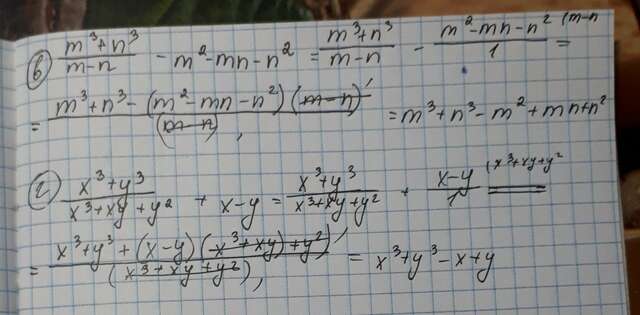 в) (m³+n³)/(m-n) - m²-mn-n² = (m³+n³)/(m-n) - (m²-mn-n²)/1 (m-n =
= (m³+n³-(m²-mn-n²)(m-n))/(m-n), = m³+n³-m²+mn+n²
г) (x³+y³)/(x³+xy+y²) + x-y = (x³+y³)/(x³+xy+y²) + (x-y)/1 (x³+xy+y² =
= (x³+y³+(x-y)(-x³+xy)+y²)/(x³+xy+y²), = x³+y³-x+y